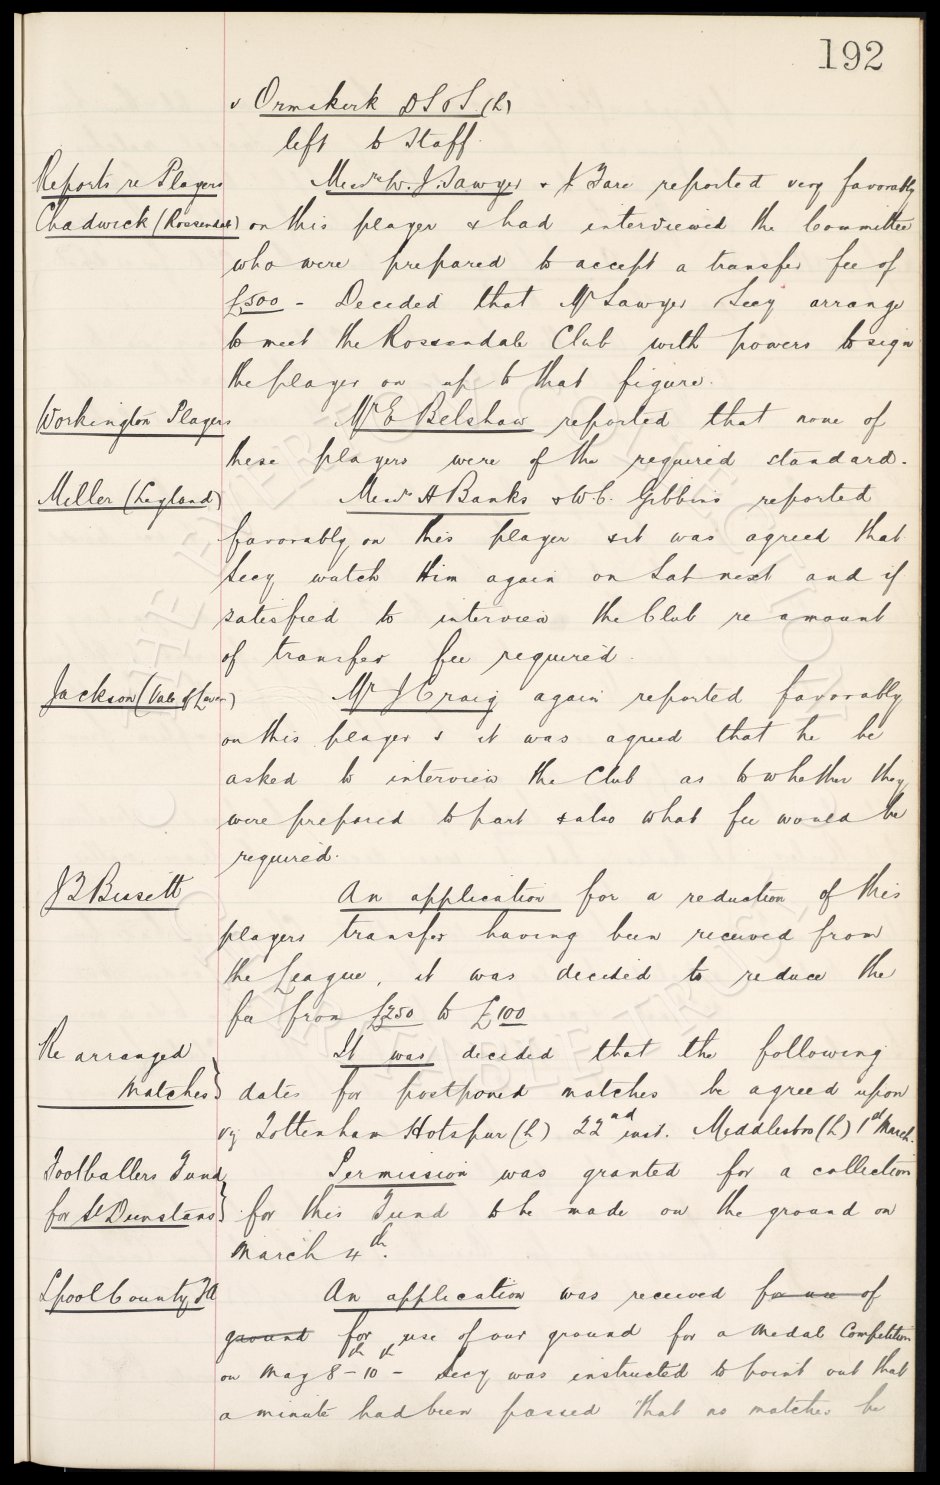 192
v Ormskirk D S & S (h)
left to Staff.
Reports re Players Messrs W. J. Sawyer & J Fare reported very favorably
Chadwick (Rossendale) on this player & had interviewed the Committee
who were prepared to accept a transfer fee of
£500 - Decided that Mr Sawyer & Secy arrange
to meet the Rossendale Club with powers to sign
the player on up to that figure.
Workington Players Mr E Belshaw reported that none of
these players were of the required standard.
Miller (Leyland) Messrs H Banks & W C. Gibbins reported
favorably on this player & it was agreed that
Secy watch him again on Sat next and if
satisfied to interview the Club re amount
of transfer fee required.
Jackson (Vale of Leven) Mr J Craig again reported favorably
on this player & it was agreed that he be
asked to interview the Club as to whether they
were prepared to part & also what fee would be
required.
J B Bissett An application for a reduction of this
players transfer having been received from
the League, it was decided to reduce the
fee from £250 to £100
Re arranged It was decided that the following
Matches} dates for postponed matches be agreed upon
viz Tottenham Hotspur (h) 22nd inst. Middlesbro (h) 1st March.
Footballers Fund Permission was granted for a collection
for St Dunstans} for this Fund to be made on the ground on
March 4th.
Lpool County FA An application was received for use of
ground for use of our ground for a Medal Competition
on May 8th - 10th - Secy was instructed to point out that
a minute had been passed that no matches be
THE EVERTON COLLECTION
CHARITABLE TRUST